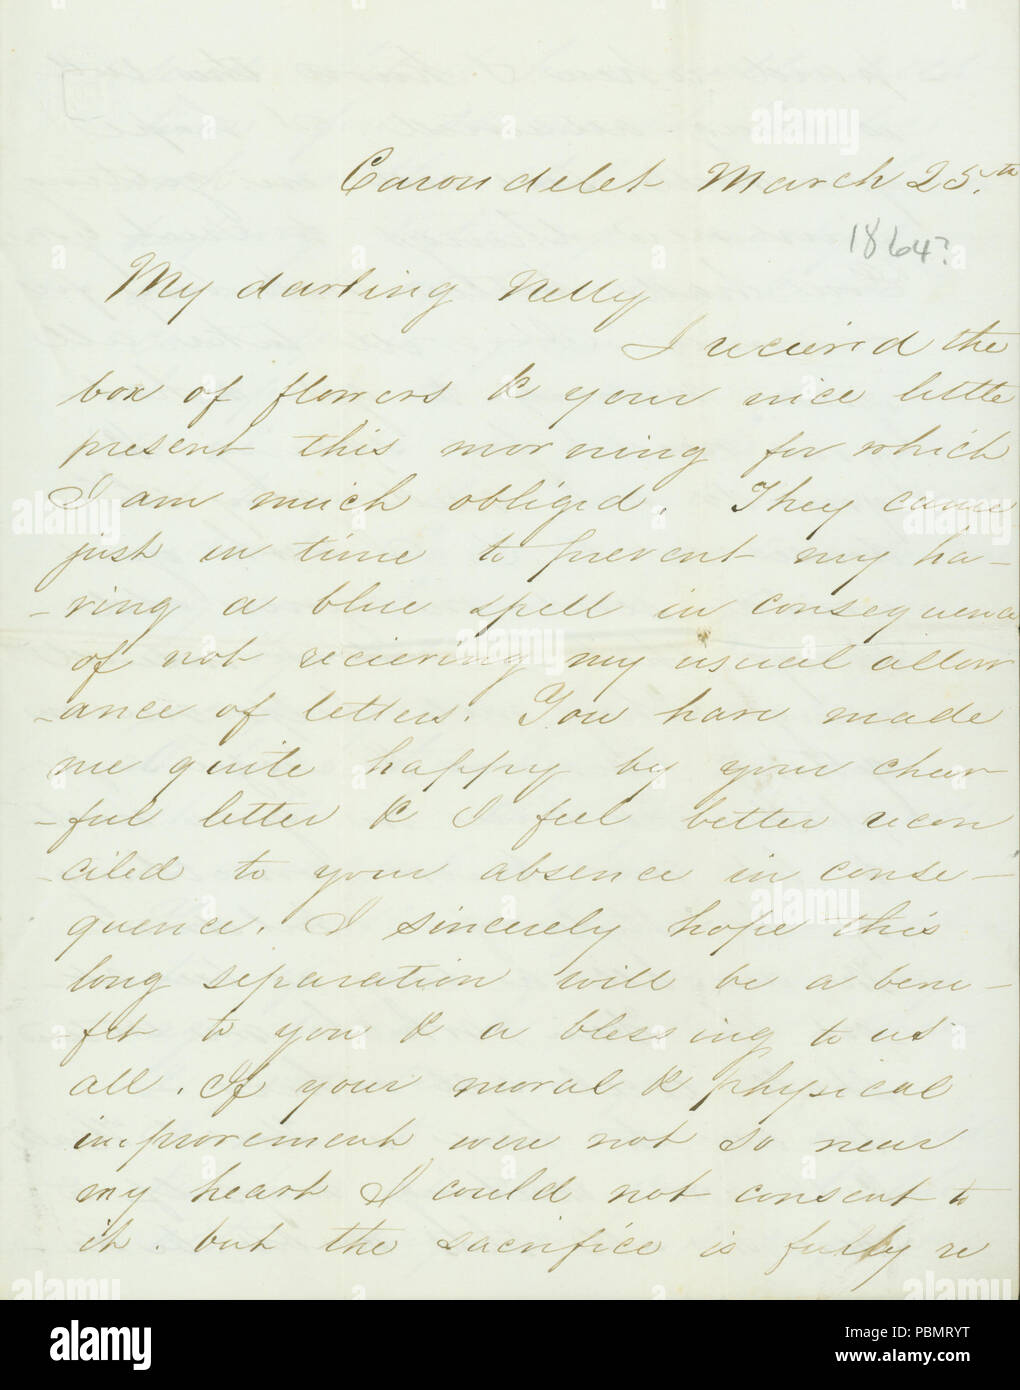 Carondelet March 25.th
1864?
My darling Nelly
I recieved the
box of flowers & your nice little
present this morning for which
I am much obliged. They came
just in time to prevent my ha-
-ving a blue spell in consequence
of not recieving my usual allow
-ance of letters. You have made
me quite happy by your cheer-
-ful letter & I feel better recon
-ciled to your absence in conse-
quence. I sincerely hope this
long separation will be a bene-
fit to you & a blessing to us
all. If your moral & physical
improvement were not so near
my heart I could not consent to
it. but the sacrifice is fully re
alamy
Image ID: PBMRYT
www.alamy.com